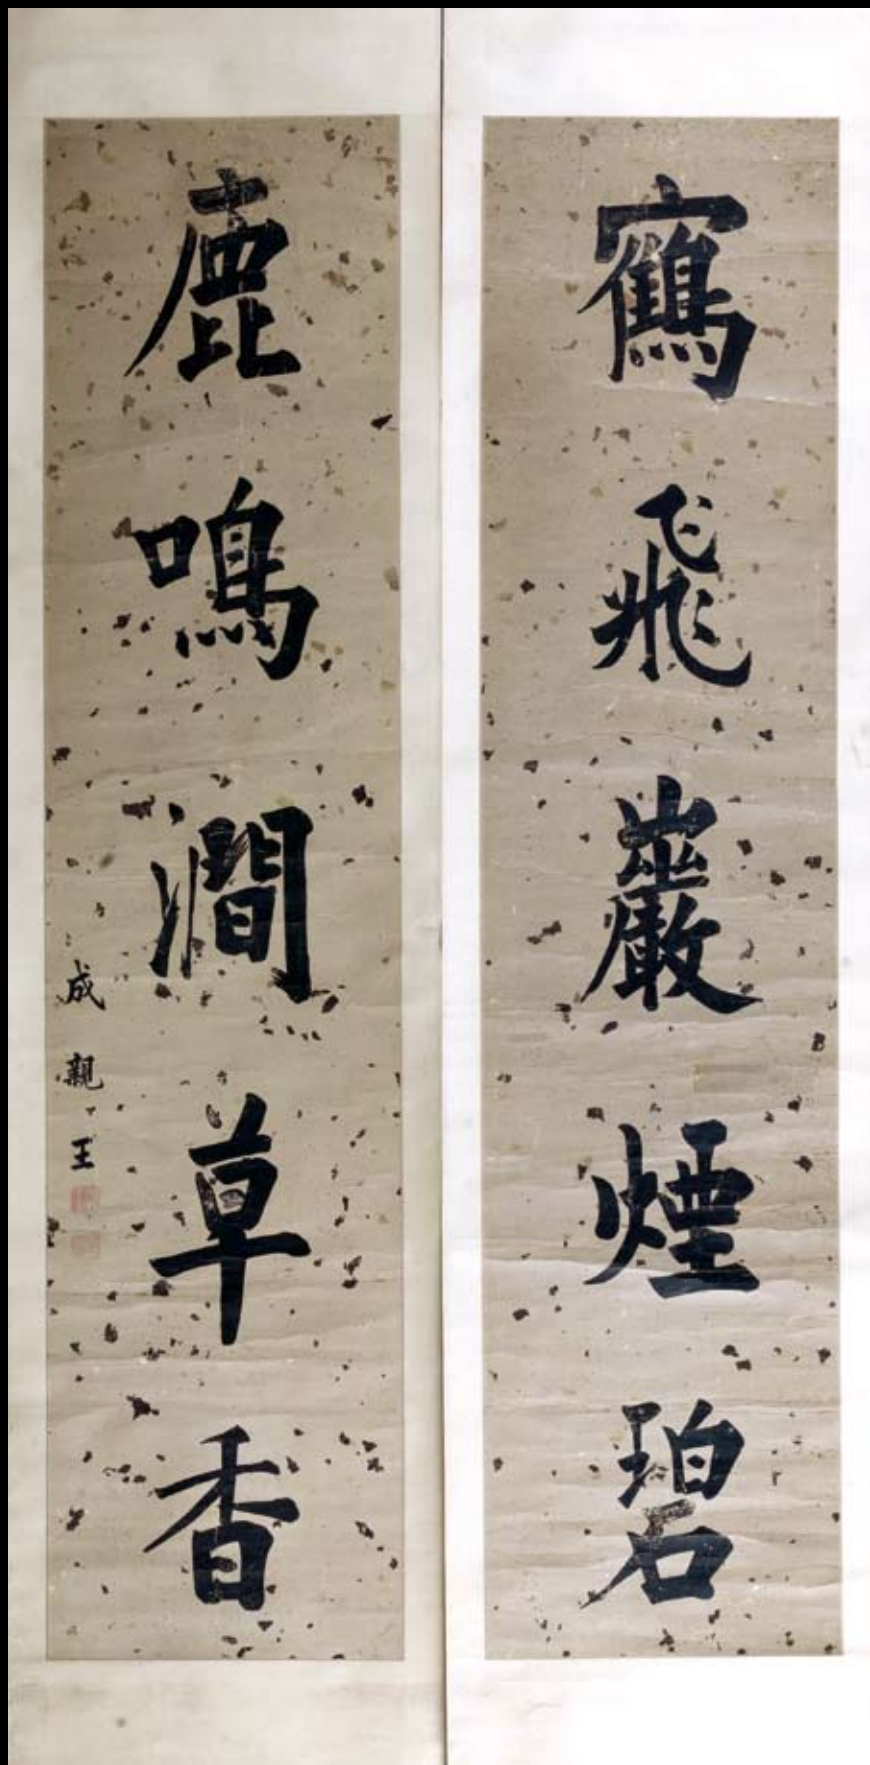 鶴飛巖煙碧
鹿鳴澗草香
成親王